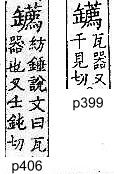 瓦器又
千見切
p399
紡錘說文曰瓦
器也又士鈍切
p406